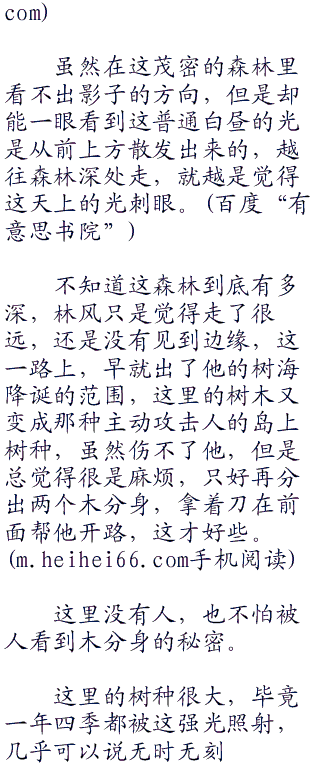 com)
虽然在这茂密的森林里
看不出影子的方向，但是却
能一眼看到这普通白昼的光
是从前上方散发出来的，越
往森林深处走，就越是觉得
这天上的光刺眼。(百度“有
意思书院”)
不知道这森林到底有多
深，林风只是觉得走了很
远，还是没有见到边缘，这
一路上，早就出了他的树海
降诞的范围，这里的树木又
变成那种主动攻击人的岛上
树种，虽然伤不了他，但是
总觉得很是麻烦，只好再分
出两个木分身，拿着刀在前
面帮他开路，这才好些。
(m.heihei66.com手机阅读)
这里没有人，也不怕被
人看到木分身的秘密。
这里的树种很大，毕竟
一年四季都被这强光照射，
几乎可以说无时无刻